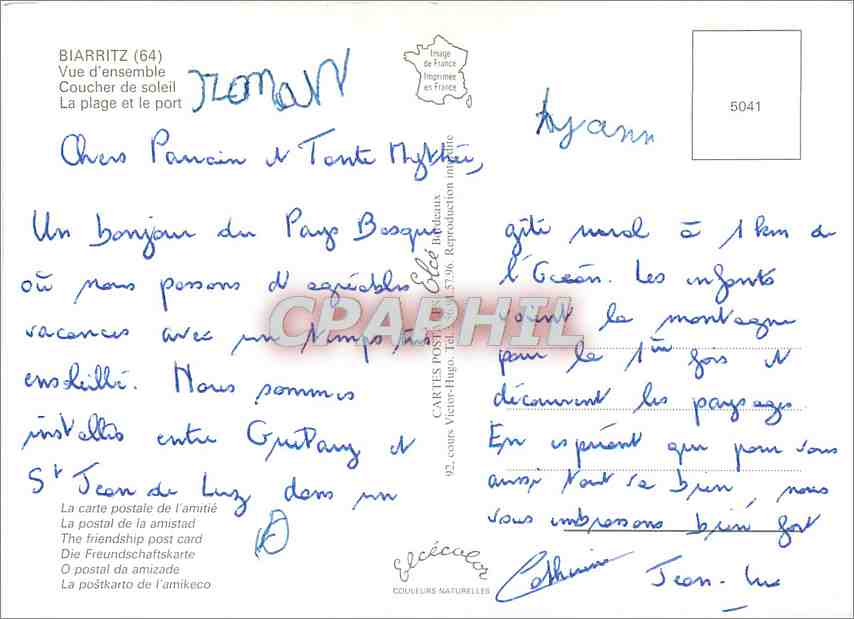 BIARRITZ (64)
Vue d'ensemble
Coucher de soleil
La plage et le port
Image
de France
Imprimée
en France
5041
Chers Parrain et Tante
Un bonjour du Pays Basque
où nous passons d'agréables
vacances avec un temps très
ensoleillé. Nous sommes
installés entre Guétary et
St Jean de Luz dans un
gîte rural à 1 km de
l'Océan. Les enfants
voient la montagne
pour la 1ère fois et
découvrent les paysages.
En espérant que pour vous
aussi tout va bien, nous
vous embrassons bien fort
Catherine Jean-Luc
CARTES POSTALES Elcé Bordeaux
92, cours Victor-Hugo. Reproduction interdite
CPAPHIL
La carte postale de l'amitié
La postal de la amistad
The friendship post card
Die Freundschaftskarte
O postal da amizade
La poŝtkarto de l'amikeco
Elcécolor
COULEURS NATURELLES